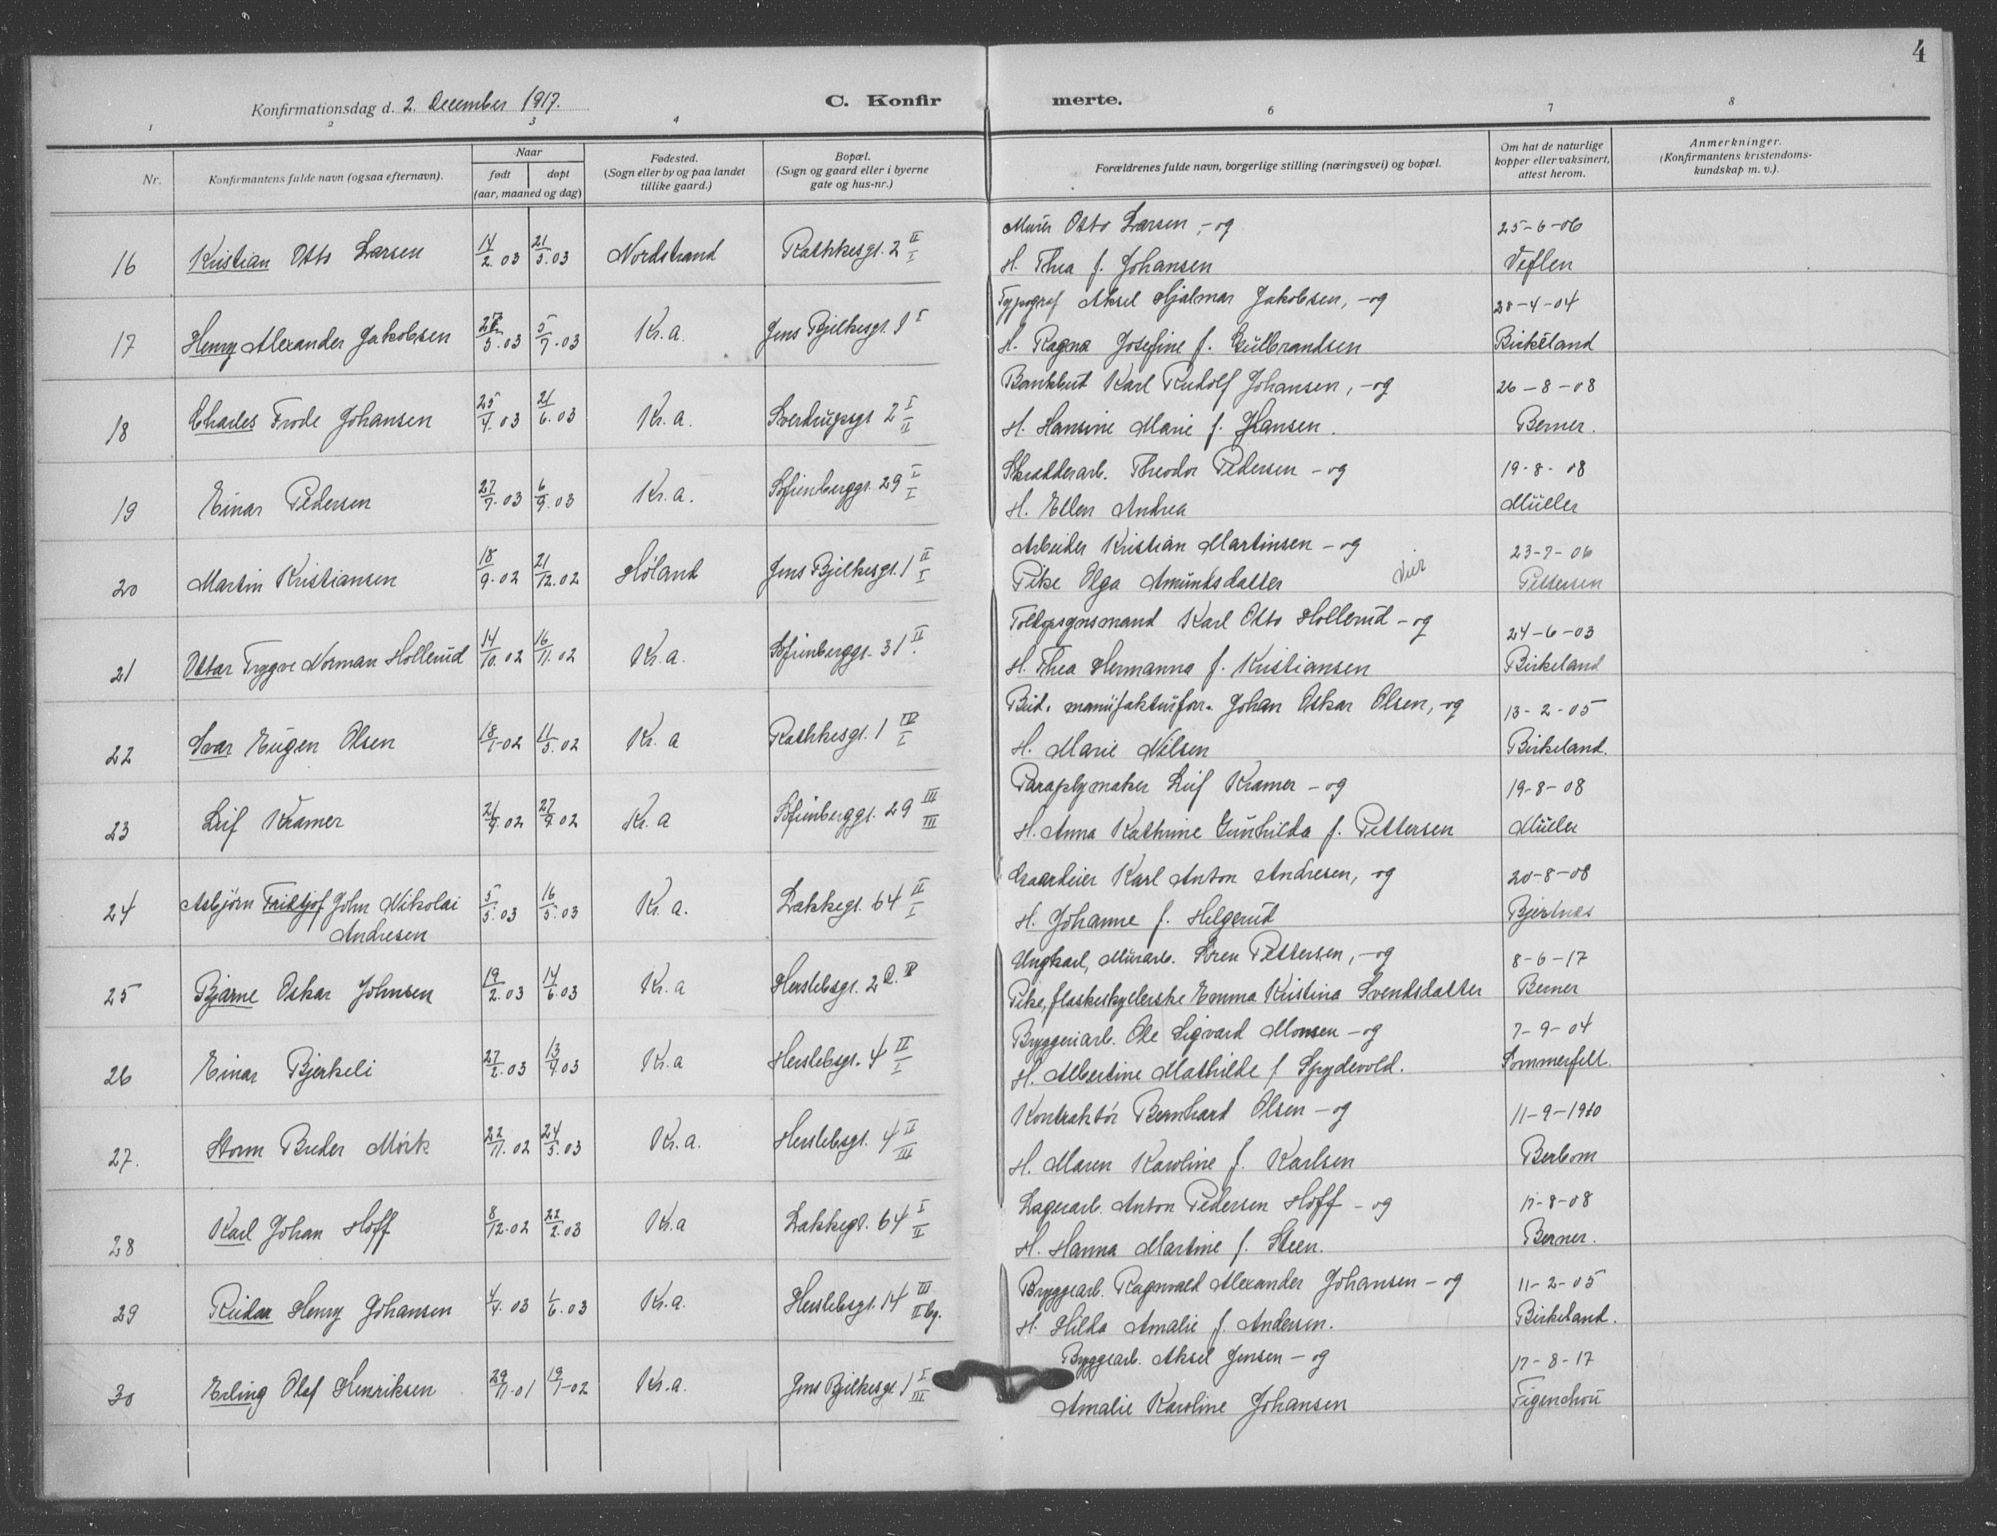 4
Konfirmationsdag d. 2. December 1917.
C. Konfirmerte.
1 2 3 4 6 7 8
Nr.
Konfirmantens fulde navn (ogsaa efternavn).
Naar
født
døpt
(aar, maaned og dag)
Fødested.
(Sogn eller by og paa landet
tillike gaard.)
Bopæl.
(Sogn og gaard eller i byerne
gate og hus-nr.)
Forældrenes fulde navn, borgerlige stilling (næringsvei) og bopæl.
Om hat de naturlige
kopper eller vaksinert,
attest herom.
Anmerkninger.
(Konfirmantens kristendoms-
kundskap m. v.).
16 Kristian Otto Larsen 14/2.03 21/5.03 Nordstrand Rathkesgt. 2 II/I
Murer Otto Larsen, - og 25-6-06
H. Thea f. Johansen Veflen
17 Henry Alexander Jakobsen /5.03 5/7.03 Kr.a. Jens Bjelkesgt. 9 I
Typograf Aksel Hjalmar Jakobsen, - og 28-4-04
H. Ragna Josefine f. Gulbrandsen Birkeland
18 Charles Frode Johansen 25/4.03 21/6.03 Kr.a. Sverdrupsgt 2 I/II
Bankbud Karl Rudolf Johansen, - og 26-8-08
H. Hansine Marie f. Hansen. Berner.
19 Einar Pedersen 27/7.03 6/9.03 Kr.a. Sofienberggt. 29 I/I
Skrædderarb. Theodor Pedersen - og 19-8-08
H. Ellen Andrea Müller
20 Martin Kristiansen 18/9.02 21/12.02 Høland Jens Bjelkesgt. 1 II/I
Arbeider Kristian Martinsen - og 23-7-06
Pike Olga Amundsdatter Pettersen
21 Ottar Trygve Norman Hollerud 14/10.02 16/11.02 Kr.a. Sofienberggt. 31 II.
Toldopsynsmand Karl Otto Hollerud - og 24-6-03
H. Thea Hermanna f. Kristiansen Birkeland
22 Ivar Eugen Olsen 18/1-02 11/5.02 Kr.a Rathkesgt. 1 III/I
Bud. manufakturforr. Johan Oskar Olsen, - og 13-2-05
H. Marie Nilsen Birkeland.
23 Leif Kramer 21/9.02 27/9.02 Kr.a Sofienberggt. 29 III/III
Paraplymaker Leif Kramer - og 19-8-08
H. Anna Kathrine Gunhilda f. Pettersen Müller
24 Asbjørn Fridtjof John Nikolai
Andresen 5/5.03 16/5.03 Kr.a. Lakkegt. 64 II/I
Karl Anton Andresen, - og 20-8-08
H. Johanne f. Helgerud Bjertnæs
25 Bjarne Oskar Johnsen 19/2.03 14/6.03 Kr.a Herslebsgt.
Ungkarl, Murarb. Søren Pettersen, - og 8-6-17
Pike, flaskeskyllerske Emma Kristina Svendsdatter Berner
26 Einar Bjerkeli 27/2.03 13/9.03 Kr.a Herslebsgt. 4 II/I
Bryggeriarb. Ole Sigvard Monsen - og 7-9-04
H. Albertine Mathilde f. Spydevold. Sommerfelt.
27. Storm Breder Mörk 22/11.02 24/5.03 Kr.a. Herslebsgt. 4 II/III
Kontraktör Bernhard Olsen - og 11-9-1910
H. Maren Karoline f. Karlsen Berbom
28 Karl Johan Hoff 8/12.02 22/2.03 Kr.a Lakkegt. 64 I/II
Lagerarb. Anton Pedersen Hoff - og 17-8-08
H. Hanna Martine f. Steen. Berner.
29 Reidar Henry Johansen 4/4.03 1/6.03 Kr.a. Herslebsgt. 14 III/II bg.
Bryggearb. Ragnvald Alexander Johansen - og 11-2-05
H. Hilda Amalie f. Andersen. Birkeland.
30 Erling Olaf Henriksen 29/11.01 19/1-02 Kr.a. Jens Bjelkesgt. 1 I/III
Byggearb. Aksel Jensen - og 17-8-17
Amalie Karoline Johansen Figenchou